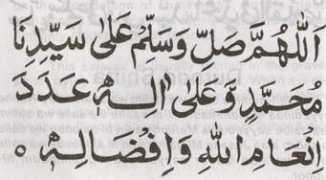 اَللّٰهُمَّ صَلِّ وَسَلِّمْ عَلٰى سَيِّدِنَا
مُحَمَّدٍ وَّعَلٰى اٰلِهٖ عَدَدَ
اِنْعَامِ اللهِ وَاِفْضَالِهٖ ○